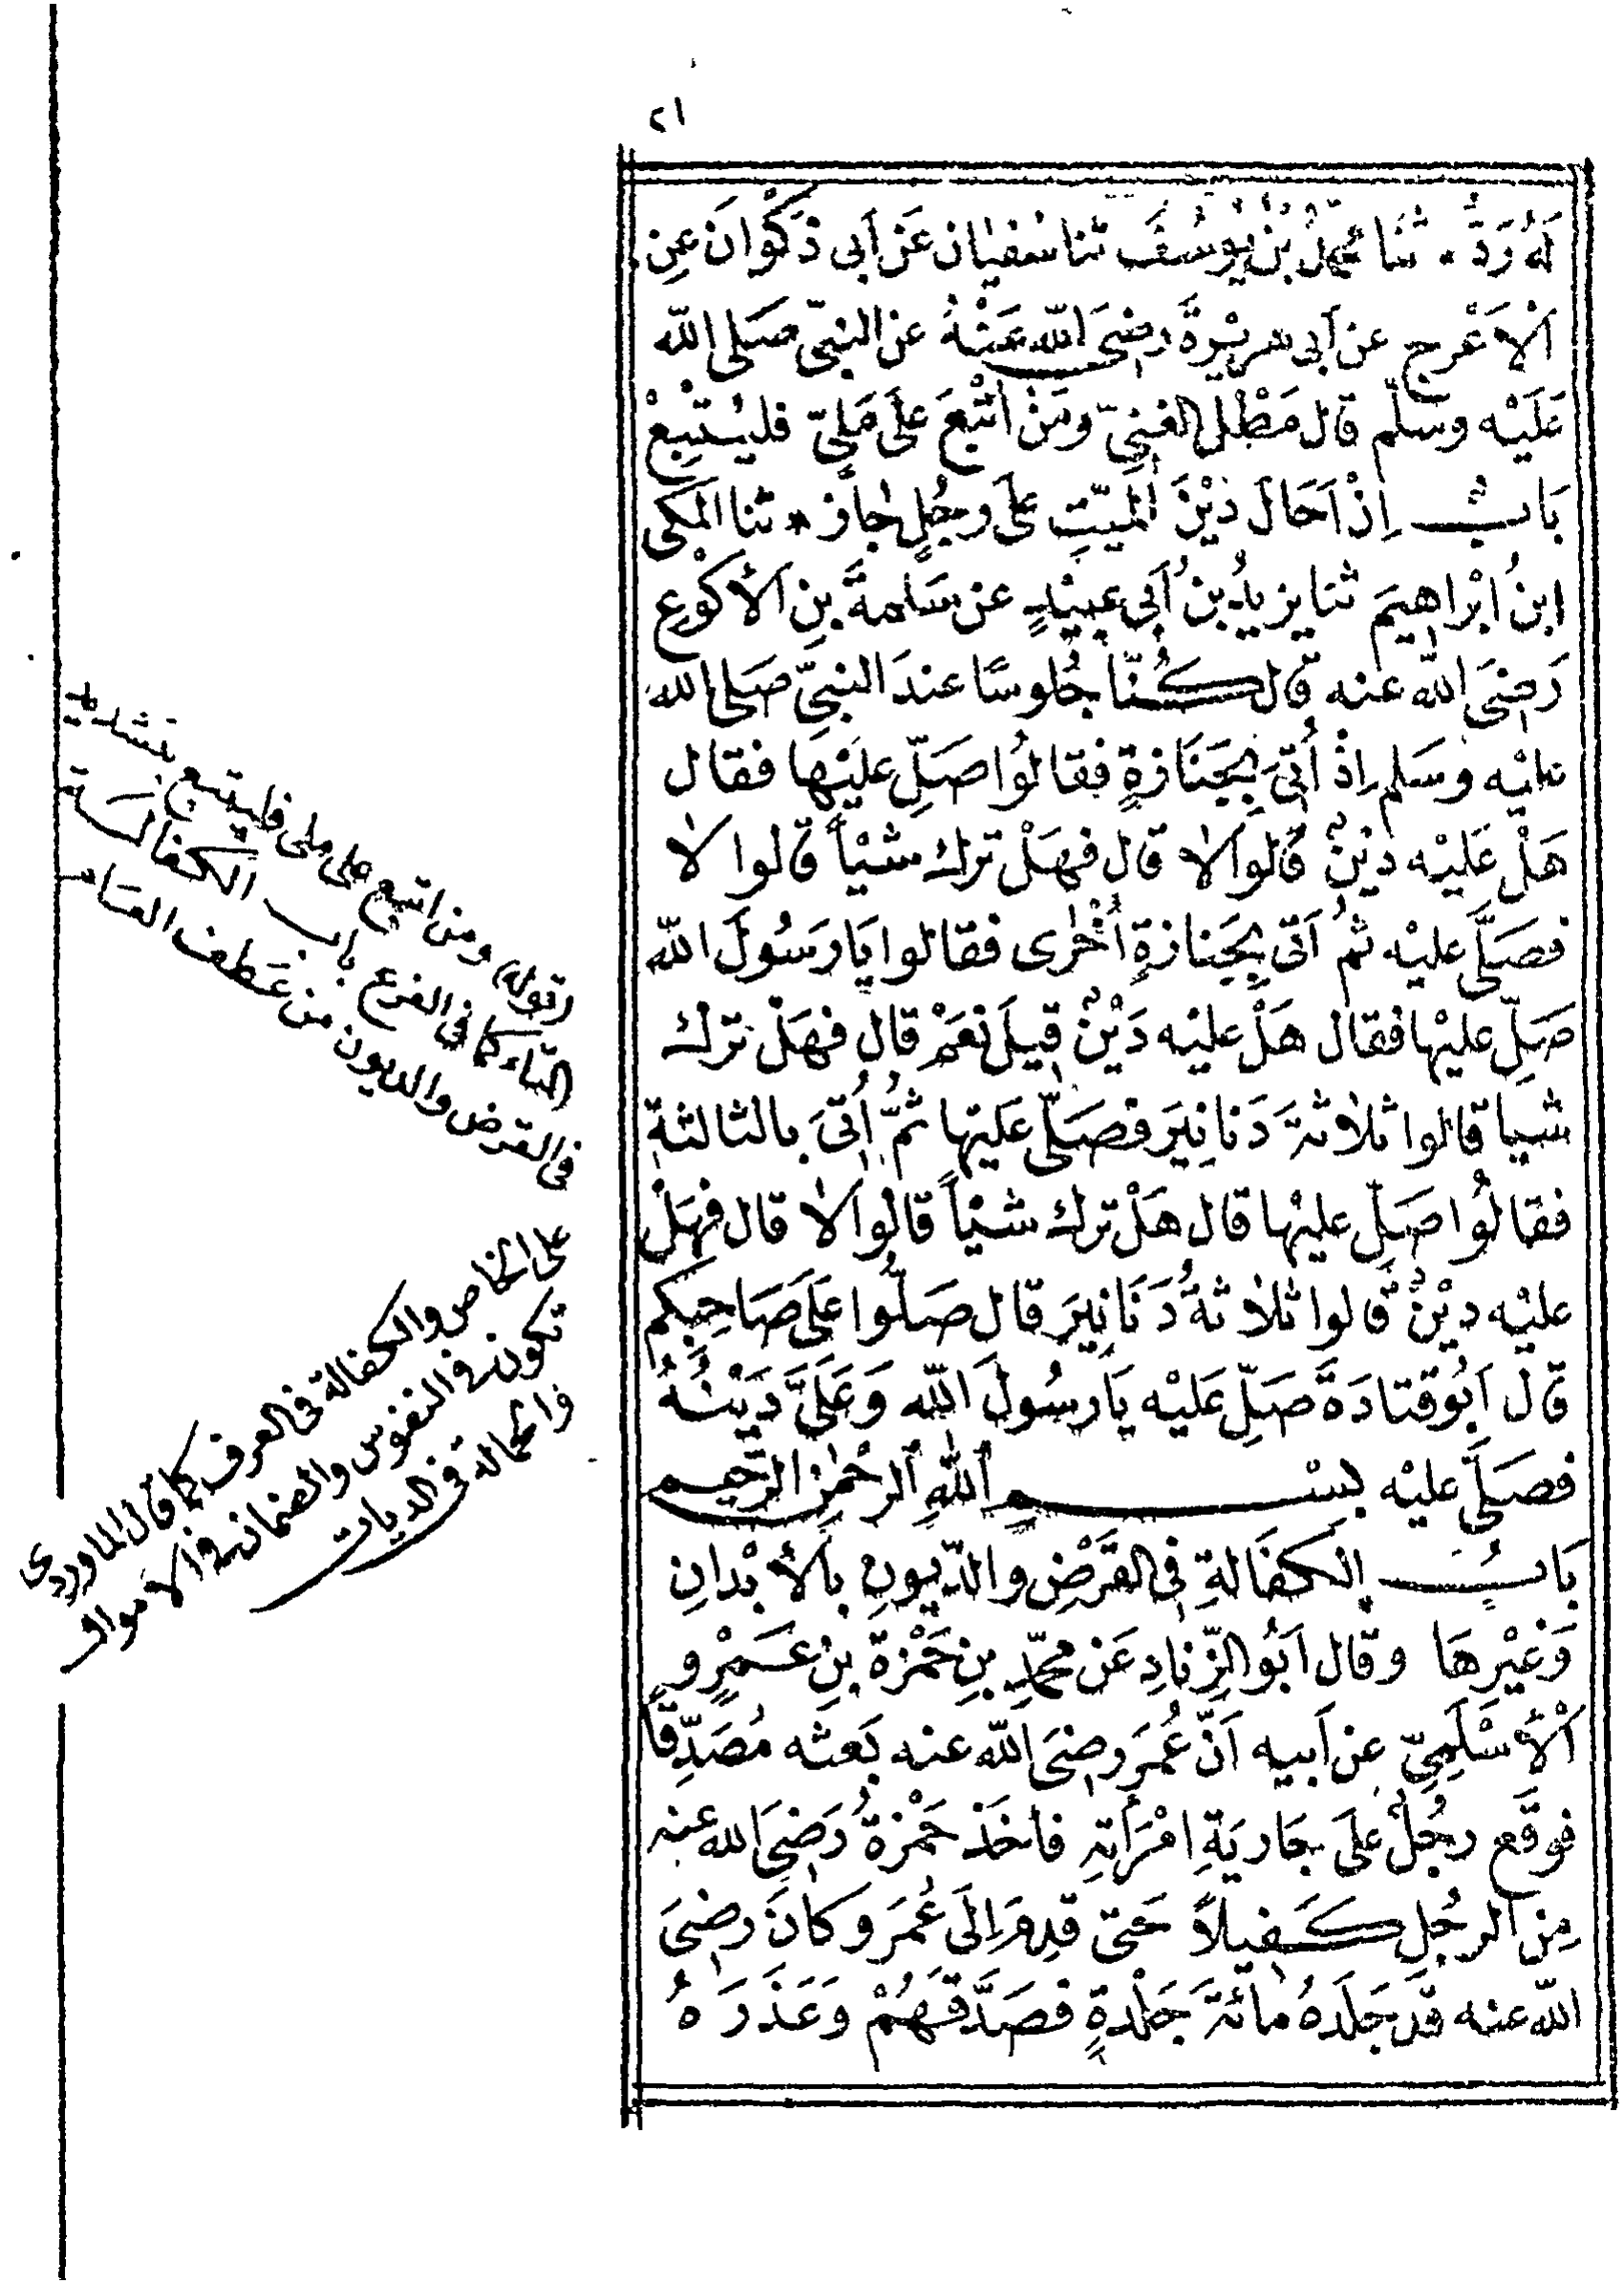 ٢١
لَهُ رَدٌّ * ثنَا محمدُ بْنُ يُوسُفَ ثنا سُفيان عَن اَبى ذَكْوَانَ عَنِ
اَلْاَعْرج عن اَبى هريْرةَ رضىَ اللّه عَنْهُ عن النبىّ صَلى اللّه
عَلَيْه وسَلّم قال مَطْلُ الغنىِّ ومَنْ اتْبعَ عَلَى مَلىّ فليسْتَبِعْ
بَابٌ اِذْ اَحَالَ دَيْنَ الْميّتِ عَلَى رجُلٍ جاز * ثنا المكى
ابنُ ابْراهيمَ ثنا يزيدُ بنُ اَبى عبيْدٍ عن سَلمةَ بنِ الأكوعِ
رَضىَ اللّه عنه قال كُنّا جُلوسًا عندَ النبىّ صَلى الله
عليْه وسَلم اِذْ أُتىَ بِجَنَازةٍ فقالُوا صَلِّ عليْها فقال
هَلْ عَليْه دَيْنٌ قالوا لا قال فهَلْ ترك شيْأً قالوا لا
فصَلَّى عليْه ثمُ اَتى بِجَنازةٍ اُخْرى فقالوا يَا رَسُولَ اللّه
صَلِّ عليْها فقال هَلْ عليْه دَيْنٌ قِيلَ نعَمْ قال فهَلْ ترك
شيا قالوا ثلاثةَ دَنانِيَر فصَلّى عَليْها ثمَّ اُتىَ بالثالثة
فقالُوا صَلِّ عليْها قال هَلْ ترك شيْأً قالُوا لا قال فهَلْ
عليْه ديْنٌ قالوا ثلاثةُ دَنَانِيرَ قال صَلُّوا عَلَى صَاحِبِكم
قال اَبُو قتادَةَ صَلِّ عَليْه يَا رسُولَ اللّه وَعَلَىَّ دَيْنُهُ
فصَلَّى عليْه بسْمِ اللّهِ الرحْمٰنِ الرَّحيمِ
بَابُ الكفَالةِ فى القَرْضِ والدّيونِ بِالأبْدانِ
وَغيْرِهَا وقال اَبُو الزِّنادِ عَن محمّدِ بنِ حَمْزةَ بنِ عَمْرٍو
اَلْأسْلَمِىّ عن اَبيه اَنّ عُمَرَ رضىَ اللّه عنه بَعثه مُصَدِّقاً
فوقَع رجُلٌ عَلَى جَاريَةِ امْرَأتهِ فاخَذ حَمْزةُ رَضىَ الله عنه
مِنَ الرجُلِ كَفيلاً حَتى قدِمَ اِلَى عُمَرَ وكانَ رضىَ
اللّه عنه قد جَلَدَهُ مائةَ جَلْدةٍ فصَدَّقهُمْ وَعَذَرَهُ
(قوله) ومن اتبع على ملى فليتبع بتشديد
التاء كما فى الفرع باب الكفالة
فى القرض والديون من عطف العام
على الخاص والكفالة فى العرف كما قال الماوردى
تكون فى النفوس والضمان فى الاموال
والحمالة فى الديات